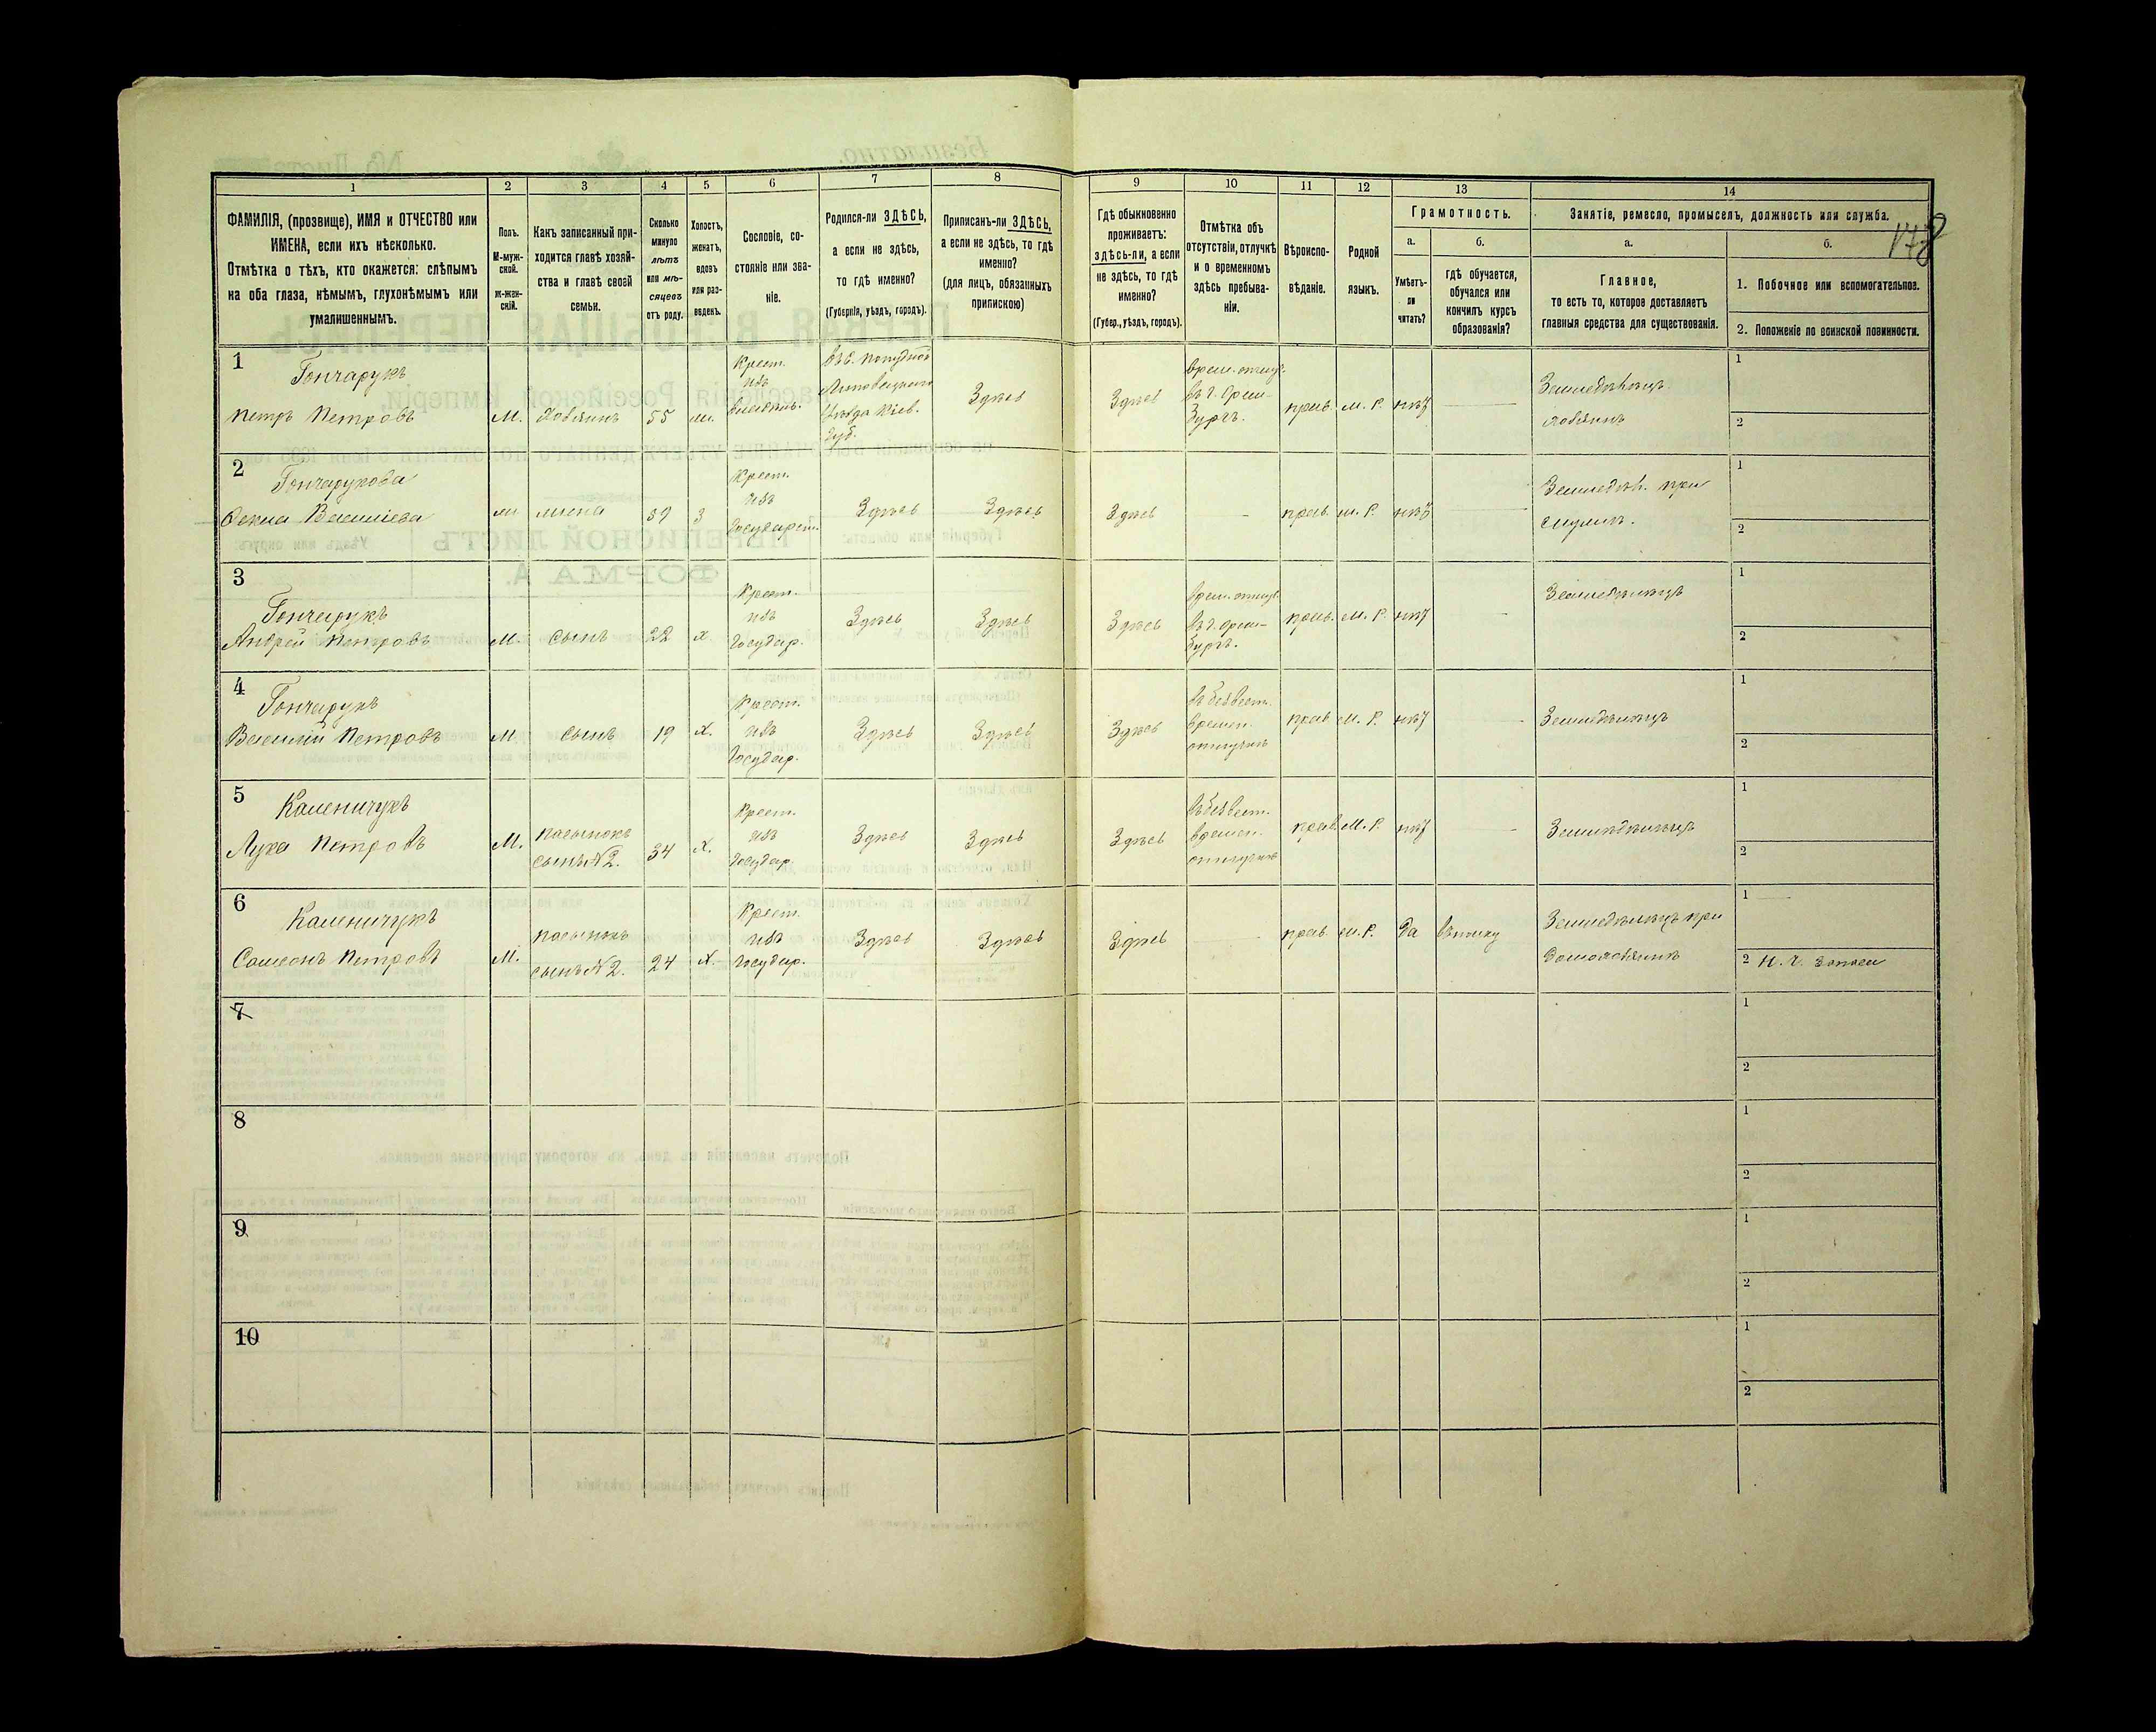 Безплатно.
№ Листа
1 2 3 4 5 6 7 8 9 10 11 12 13 14
ФАМИЛІЯ, (прозвище), ИМЯ и ОТЧЕСТВО или
ИМЕНА, если ихъ нѣсколько.
Отмѣтка о тѣхъ, кто окажется: слѣпымъ
на оба глаза, нѣмымъ, глухонѣмымъ или
умалишеннымъ.
Полъ.
М-муж-
ской.
Ж-жен-
скій.
Какъ записанный при-
ходится главѣ хозяй-
ства и главѣ своей
семьи.
Сколько
минуло
лѣтъ
или мѣ-
сяцевъ
отъ роду.
Холостъ,
женатъ,
вдовъ
или раз-
веденъ.
Сословіе, со-
стояніе или зва-
ніе.
Родился-ли ЗДѢСЬ,
а если не здѣсь,
то гдѣ именно?
(Губернія, уѣздъ, городъ).
Приписанъ-ли ЗДѢСЬ,
а если не здѣсь, то гдѣ
именно?
(для лицъ, обязанныхъ
припискою)
Гдѣ обыкновенно
проживаетъ:
здѣсь-ли, а если
не здѣсь, то гдѣ
именно?
(Губер., уѣздъ, городъ).
Отмѣтка объ
отсутствіи, отлучкѣ
и о временномъ
здѣсь пребыва-
ніи.
Вѣроиспо-
вѣданіе.
Родной
языкъ.
Грамотность.
а.
Умѣетъ-
ли
читать?
б.
гдѣ обучается,
обучался или
кончилъ курсъ
образованія?
Занятіе, ремесло, промыселъ, должность или служба.
а.
Главное,
то есть то, которое доставляетъ
главныя средства для существованія.
б.
1. Побочное или вспомогательное.
2. Положеніе по воинской повинности.
178
1
Гончарукъ
Петръ Петровъ
М.
хозяинъ
55
Крест.
изъ
Уѣзда Кіев.
Губ.
Здѣсь
Здѣсь
врем. отлуч.
въ г. Орен-
бургъ.
прав.
М. Р.
нѣт
Земледѣлецъ
хозяинъ
1
2
2
Гончарукова
Василіева
жена
39
3
Крест.
изъ
Государст.
Здѣсь
Здѣсь
Здѣсь
прав.
м. Р.
нѣт
Земледѣл. при
1
2
3
Гончарукъ
Андрей Петровъ
М.
сынъ
22
х
Крест.
изъ
Государ.
Здѣсь
Здѣсь
Здѣсь
врем. отлуч.
въ г. Орен-
бургъ.
прав.
М. Р.
нѣт
Земледѣлецъ
1
2
4
Гончарукъ
Василій Петровъ
М
сынъ
19
х.
Крест.
изъ
Государ.
Здѣсь
Здѣсь
Здѣсь
въ безвест.
времен.
отлучкѣ
прав
М. Р.
нѣт
Земледѣлецъ
1
2
5
Каменичукъ
Лука Петровъ
М.
пасынокъ
сынъ №2.
34
х.
Крест.
изъ
Государ.
Здѣсь
Здѣсь
Здѣсь
въ безвест.
времен.
отлучкѣ
прав.
М. Р.
нѣт
Земледѣлецъ
1
2
6
Каменичукъ
Самсонъ Петровъ
М.
пасынокъ
сынъ №2.
24
х.
Крест.
изъ
Государ.
Здѣсь
Здѣсь
Здѣсь
прав.
м. Р.
да
въ полку
Земледѣлецъ при
1
2 Н. Ч. запаса
7
1
2
8
1
2
9
1
2
10
1
2